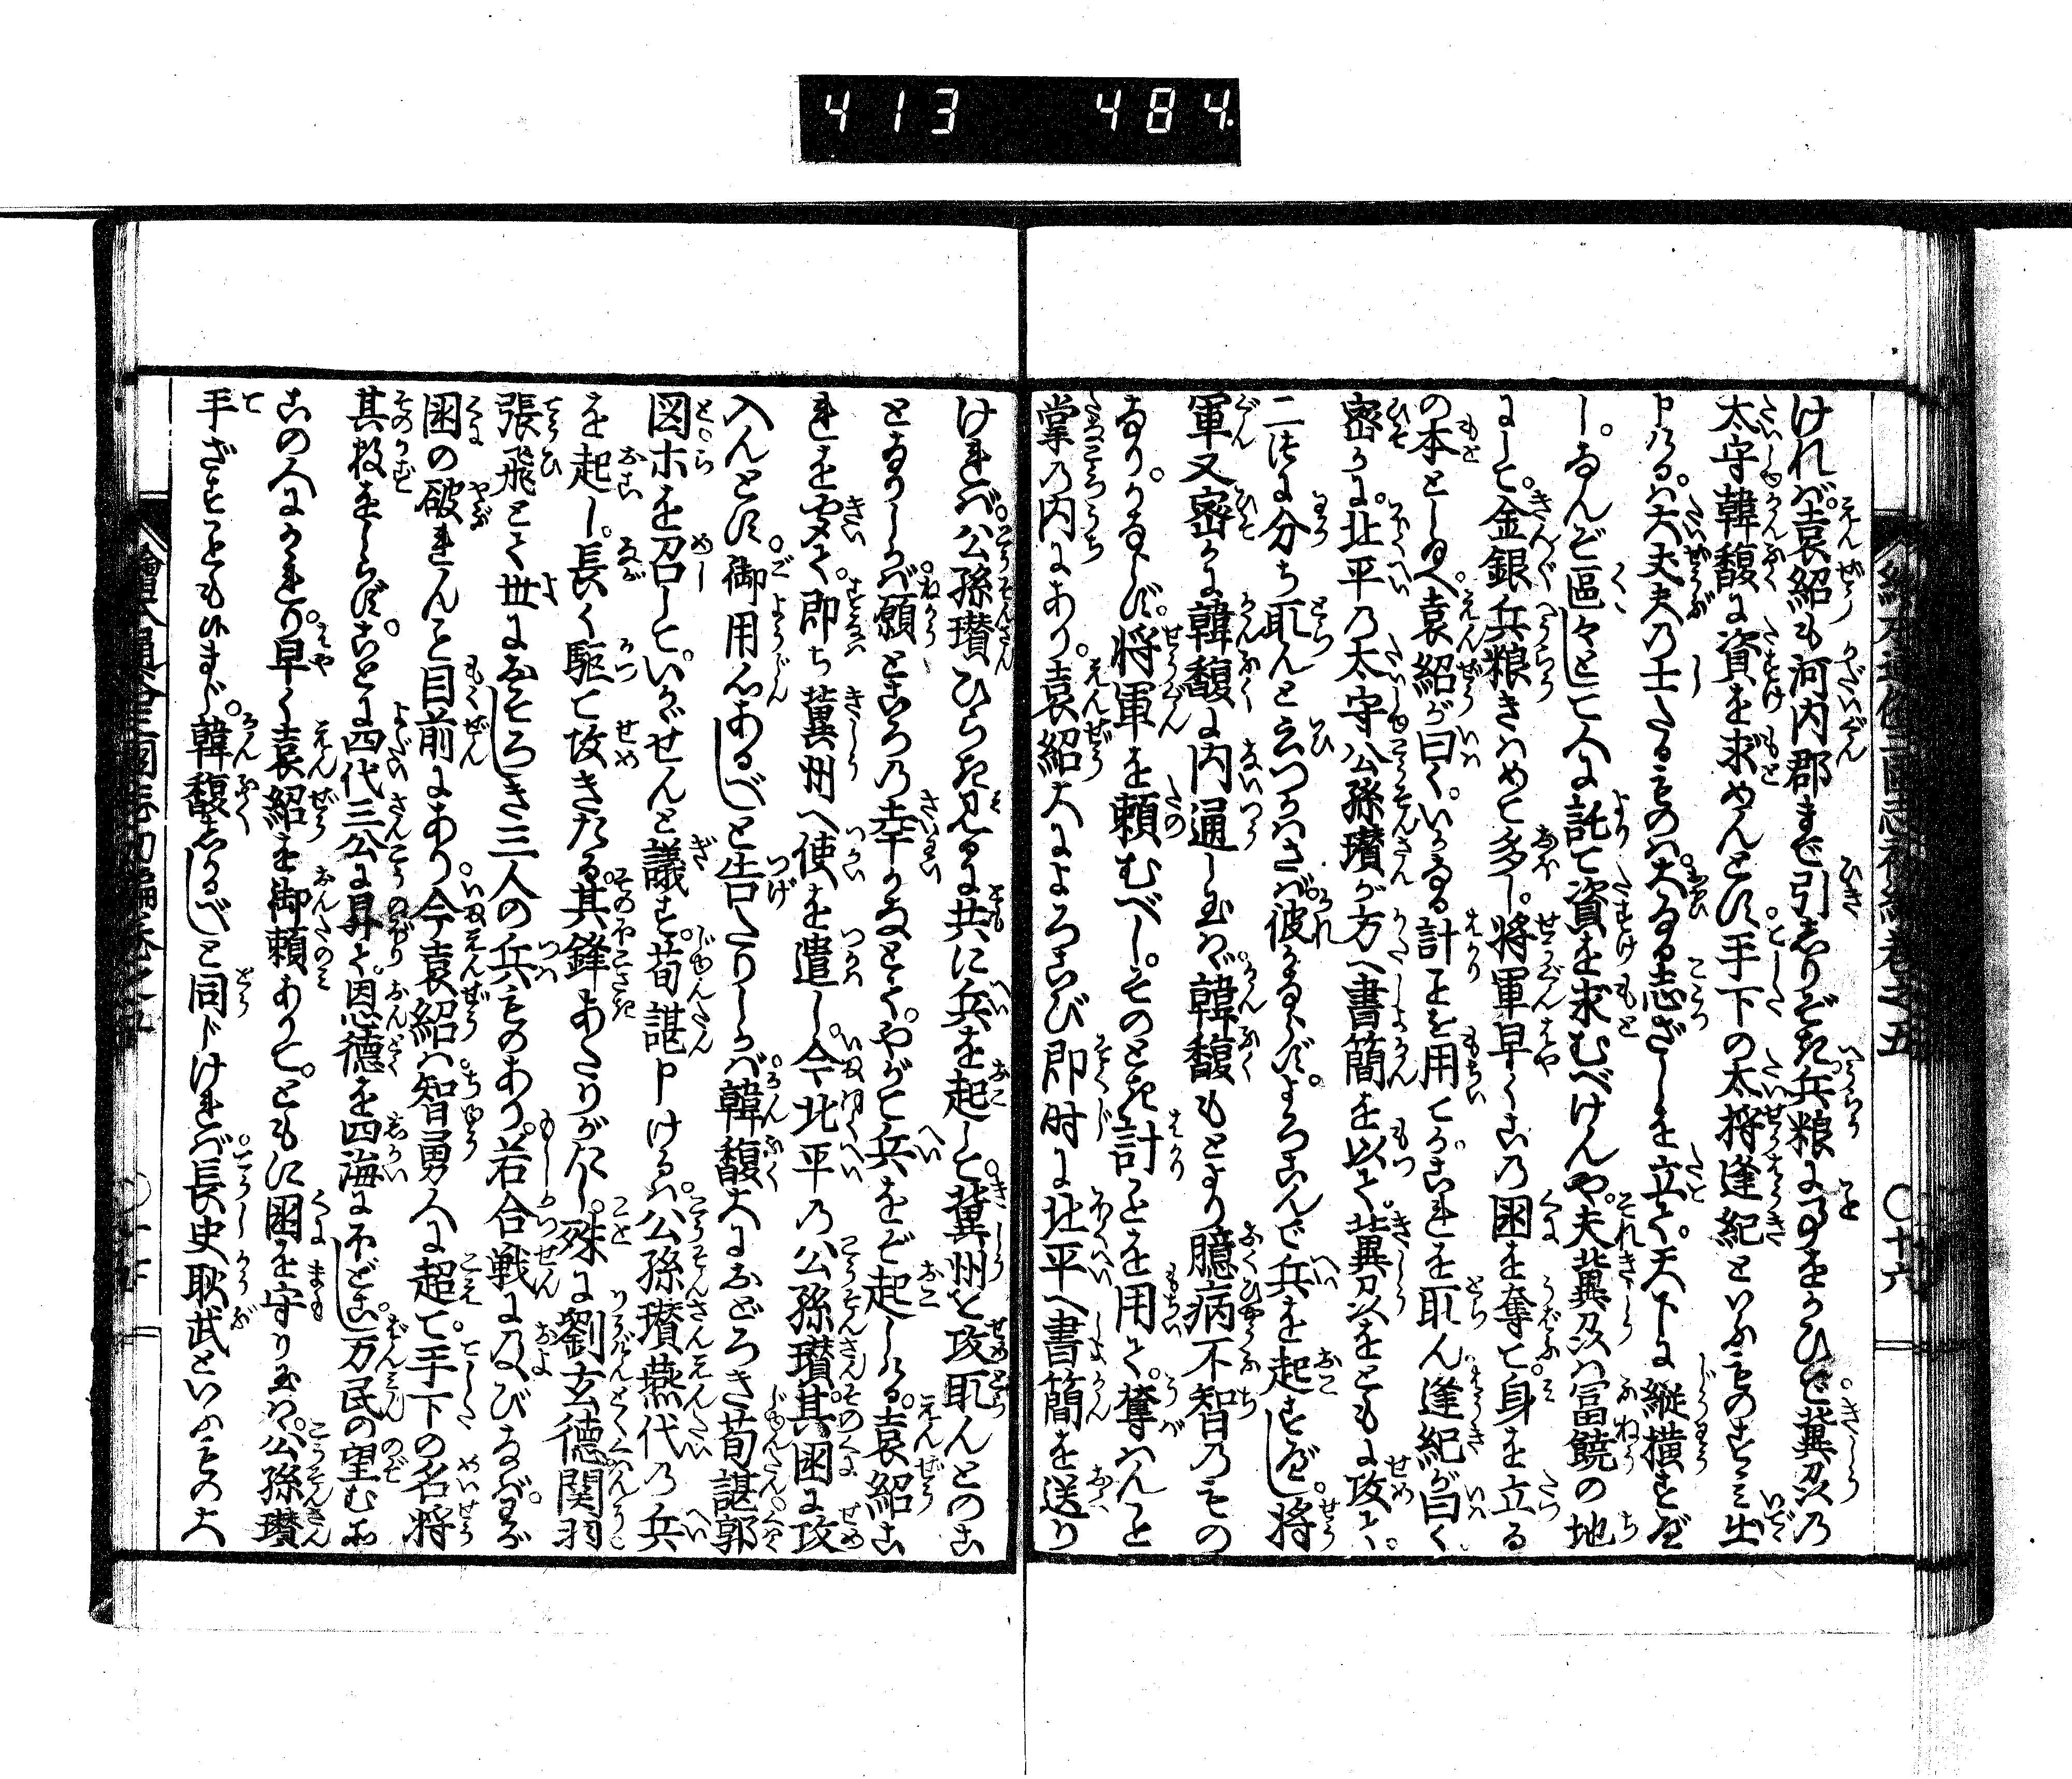 413 484
けれバ。袁紹も河内郡まで引しりぞき兵粮に事をかひて。冀州乃
太守韓馥に資を求めんとす。手下の太将逢紀といふものすゝミ出
申ける。ハ大丈夫乃士たるものハ。大なる志ざしを立て。天下に縦横すべ
し。なんぞ區々として人に託て資を求むべけんや。夫冀州ハ冨饒の地
にして。金銀兵粮きハめて多し。将軍早く此乃国を奪て。身を立る
の本としたまへ。袁紹が曰く。いかなる計りを用てかこれを取ん。逢紀が曰く
密かに。北平乃太守公孫瓚が方へ書簡を以て。冀州をともに攻て。
二ツに分ち取んと云つかハさバ彼かならず。よろこんで兵を起すべし。将
軍又密かに韓馥に内通し玉ハゞ。韓馥もとより臆病不智乃もの
なり。かならず。将軍を頼むべし。そのとき計ことを用て。奪ハんこと
掌乃内にあり。袁紹大によろこび即時に北平へ書簡を送り
けれバ。公孫瓚ひらき見るに共に兵を起して。冀州を攻取んとのこ
となりしかバ。願ところ乃幸かなとて。やがて兵をぞ起しける。袁紹こ
れを聞て。即ち冀州へ使を遣し。今北平乃公孫瓚。其国に攻
入んとす。御用心あるべしと告たりしかバ。韓馥大におどろき荀諶郭
図ホを召して。いかゞせんと議す。荀諶申けるハ。公孫瓚燕代乃兵
を起し。長く駆て攻きたる。其鋒あたりがたし。殊に劉玄徳関羽
張飛とて世におそろしき三人の兵ものあり。若合戦に及びなバ。わが
国の破れんこと目前にあり。今袁紹ハ。智勇人に超て。手下の名将
其数をしらず。ことに四代三公に昇て。恩徳を四海にほどこし。万民の望む所
この人にかゝれり。早く袁紹を御頼ありて。ともに国を守り玉ハゞ。公孫瓚
手ざすこともいまじ。韓馥しかるべしと同ドけれバ。長史耿武といふもの大